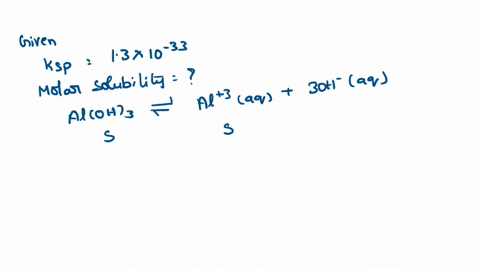 Given
Ksp = 1.3 × 10⁻³³
Molar solubility = ?
Al(OH)₃ ⇌ Al⁺³ (aq) + 3OH⁻ (aq)
S S